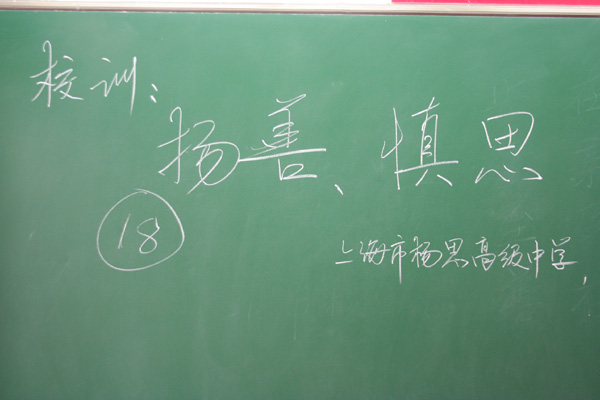 校训：
扬善、慎思
18
上海市杨思高级中学,